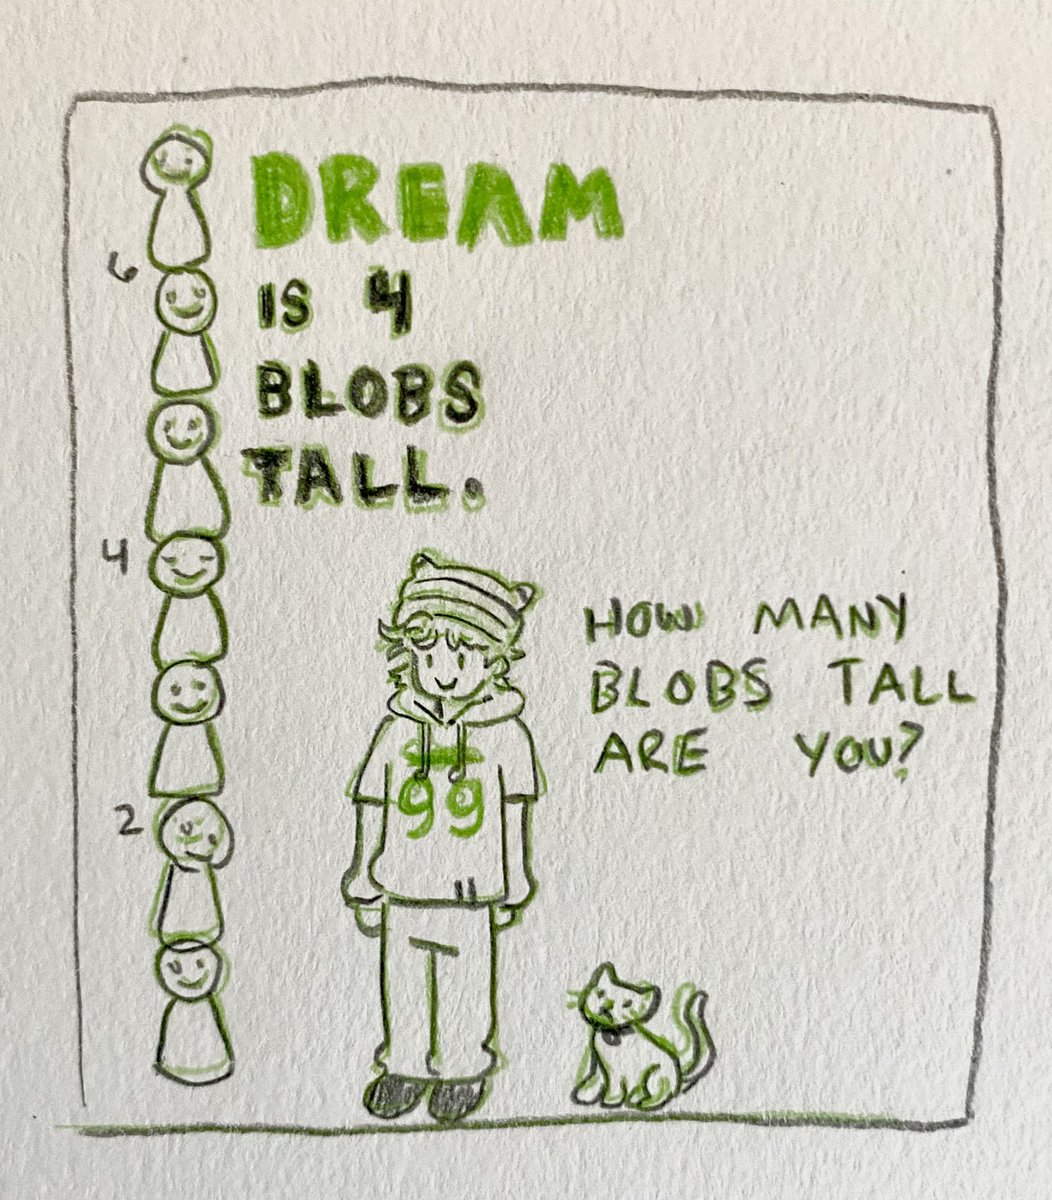 DREAM
IS 4
BLOBS
TALL.
6
4
2
HOW MANY
BLOBS TALL
ARE YOU?
99